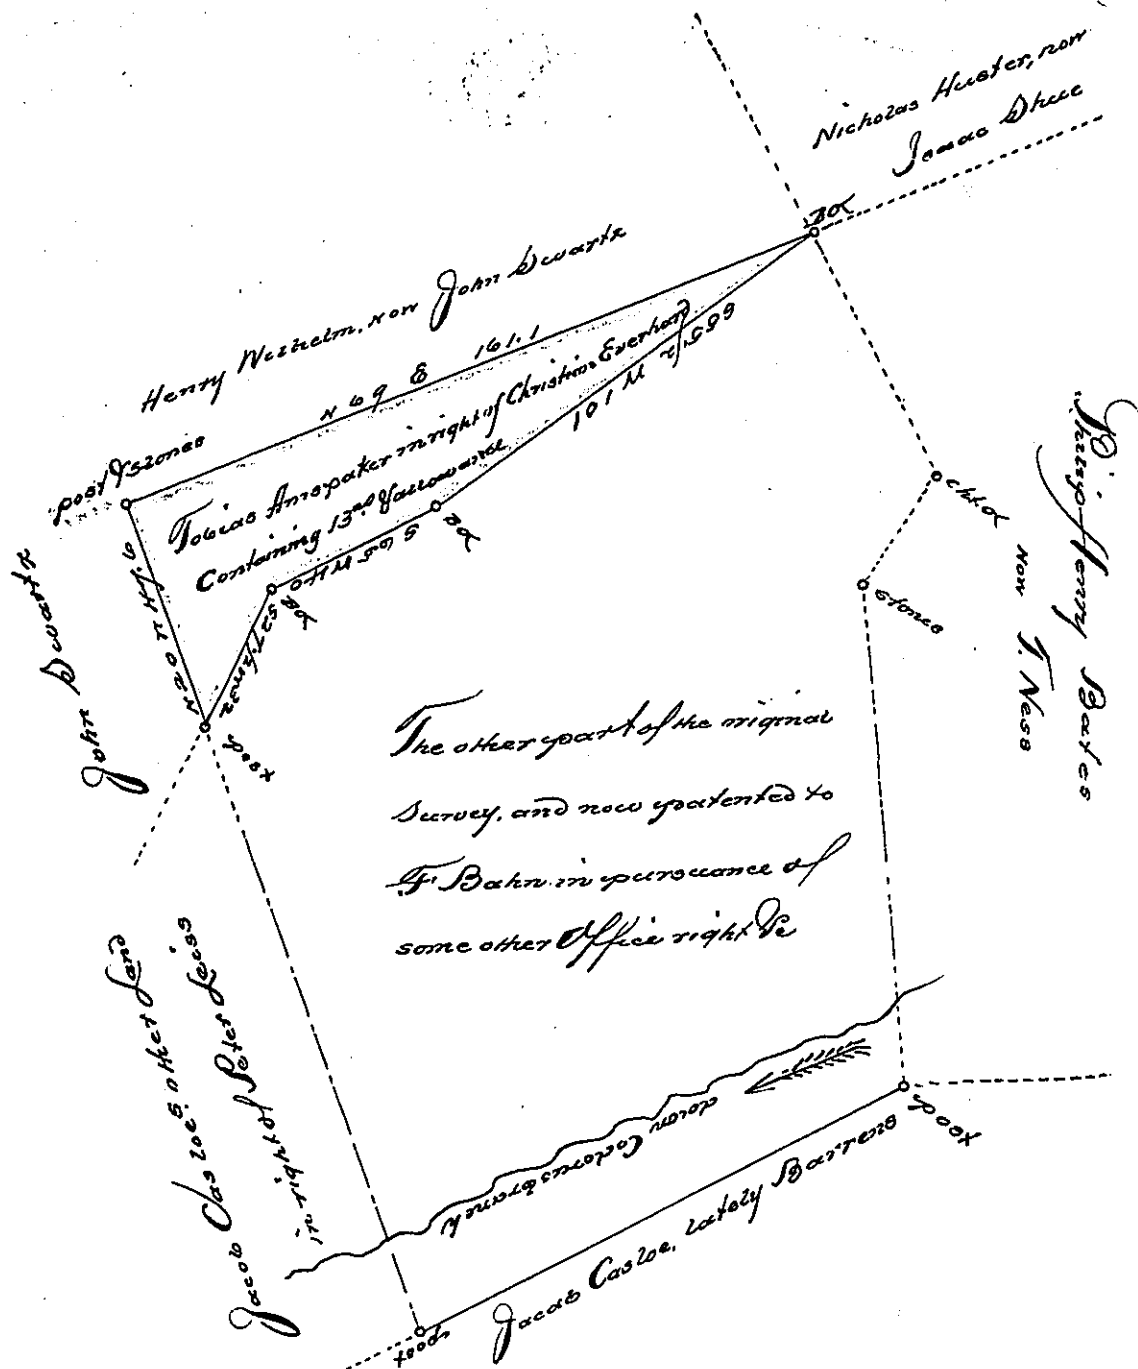 Nicholas Huster, now
Isaac Shue
BO
Henry Wilhelm, now John Swartz
N 69 E 161.1
post & stones
Tobias Amspaker in right of Christina Everhart
Containing 13 as & allowance
S 55 1/2 W 101
S 65 W 40
N 20 W
post
John Swartz
chtO
stones
Philip Henry Bates
now T. Ness
The other part of the original
Survey, and now patented to
F Bahn in pursuance of
some other Office right &c
Jacob Casloe's other Land
in right of Peter Leiss
down
Codorus branch
post
Jacob Casloe, lately Barrens
post